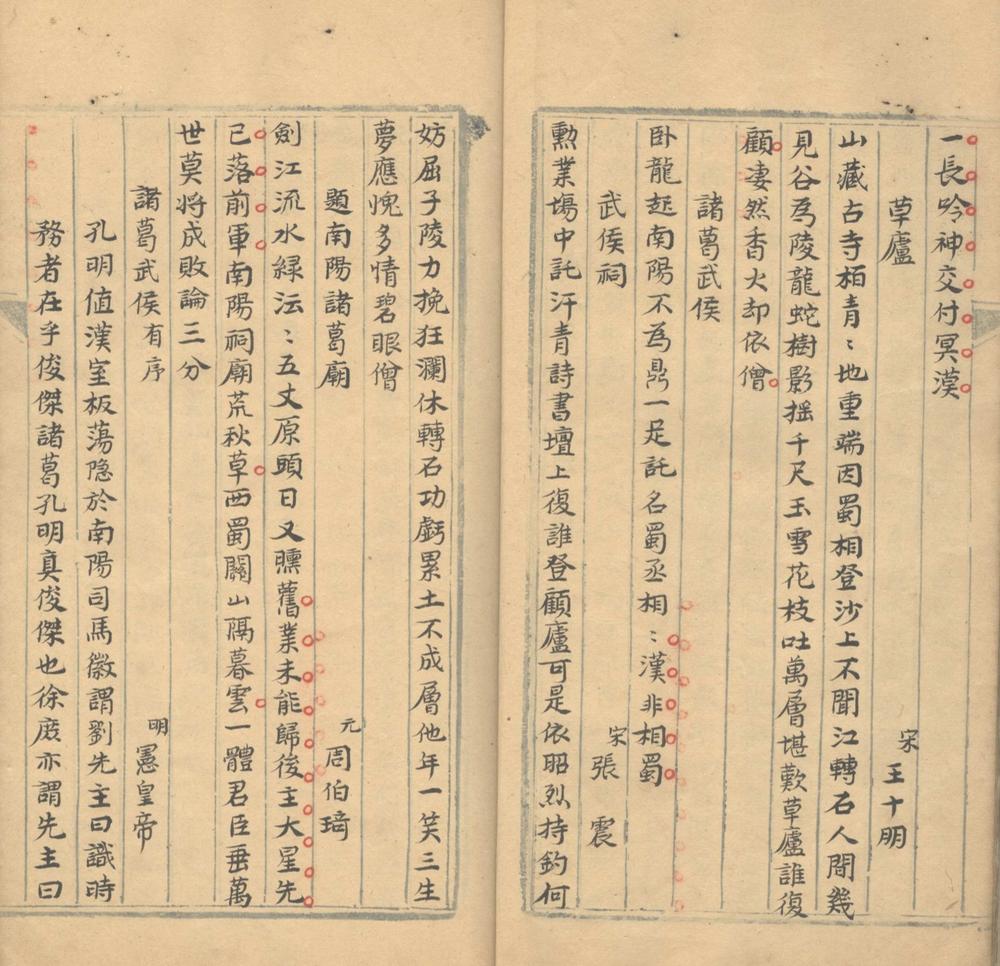 一長吟神交付冥漠
草廬 宋 王十朋
山藏古寺柏青〻地重端因蜀相登沙上不聞江轉石人間幾
見谷為陵龍蛇樹影摇千尺玉雪花枝吐萬層堪歎草廬誰復
顧凄然香火却依僧
諸葛武侯
卧龍起南陽不為鼎一足託名蜀丞相〻漢非相蜀
武侯祠 宋 張震
勲業塲中託汗青詩書壇上復誰登顧廬可是依昭烈持釣何
妨屈子陵力挽狂瀾休轉石功虧累土不成層他年一笑三生
夢應愧多情碧眼僧
題南陽諸葛廟 元 周伯琦
劍江流水緑沄〻五丈原頭日又曛舊業未能歸後主大星先
已落前軍南陽祠廟荒秋草西蜀關山隔暮雲一體君臣垂萬
世莫將成敗論三分
諸葛武侯有序 明 憲皇帝
孔明值漢室板蕩隐於南陽司馬徽謂劉先主曰識時
務者在乎俊傑諸葛孔明真俊傑也徐庶亦謂先主曰